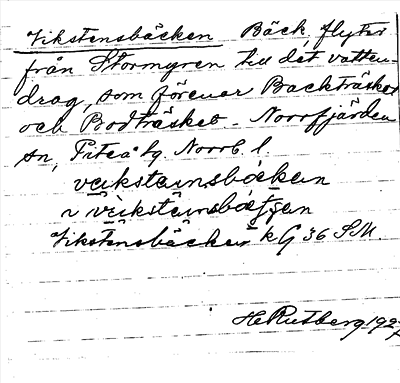 Vikstensbäcken Bäck, flyter
från Stormyren till det vatten-
drag, som förenar Backträsket
och Bodträsket - Norrfjärden
sn, Piteå tg. Norrb. l.
Vikstensbäcken k G 36 S.M.
H Rutberg 1927